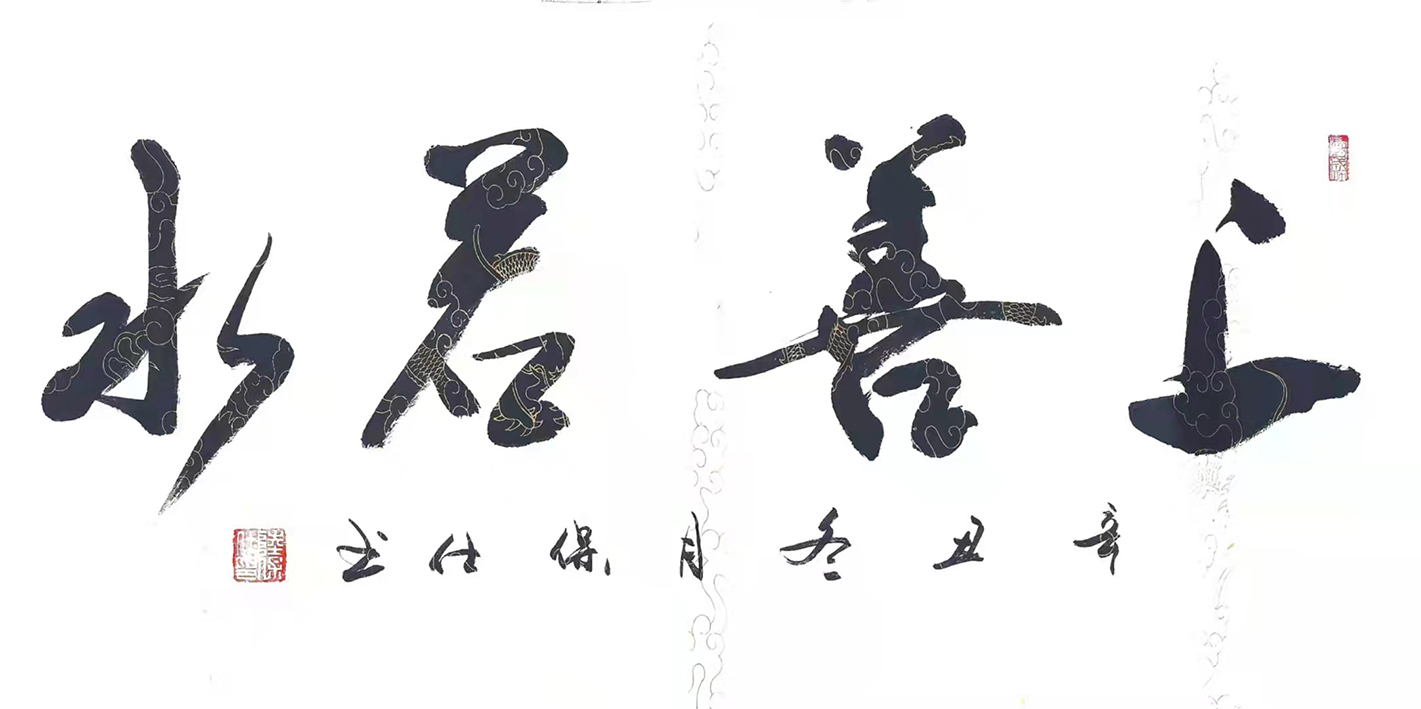 上善若水
辛丑冬月保仕书